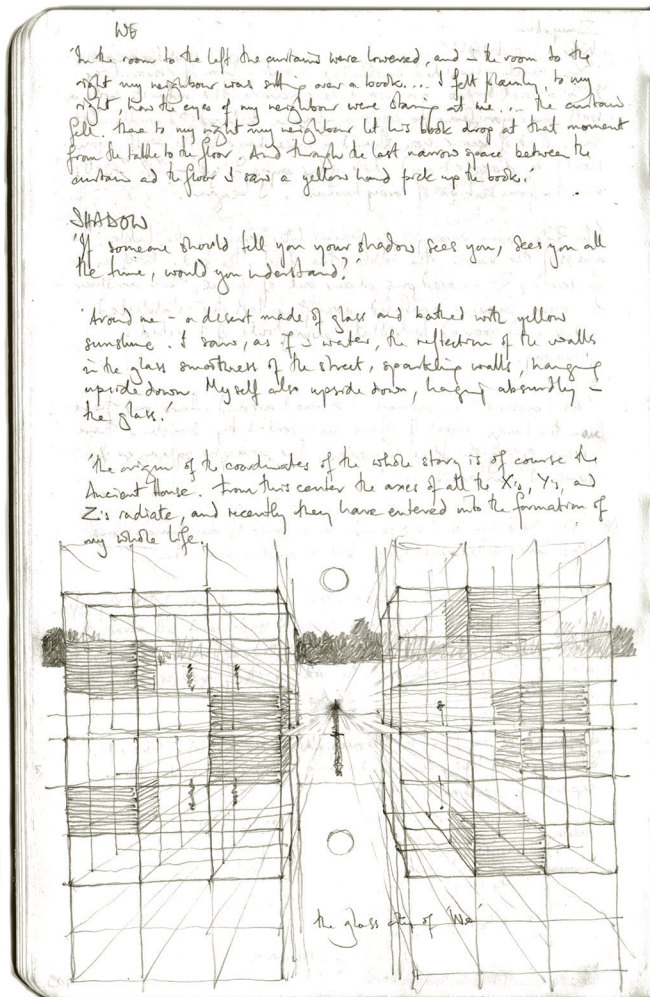 WE
'In the room to the left the curtains were lowered, and in the room to the
right my neighbour was sitting over a book.... I felt plainly, to my
right, how the eyes of my neighbour were staring at me... the curtain
fell. There to my right my neighbour let his book drop at that moment
from the table to the floor. And through the last narrow space between the
curtain and the floor I saw a yellow hand pick up the book.'
SHADOW
'If someone should tell you your shadow sees you, sees you all
the time, would you understand?'
'Around me – a desert made of glass and bathed with yellow
sunshine. I saw, as if in water, the reflection of the walls
in the glass smoothness of the street, sparkling walls, hanging
upside down. Myself also upside down, hanging absurdly in
the glass.'
'The origin of the coordinates of the whole story is of course the
Ancient House. From this center the axes of all the X's, Y's, and
Z's radiate, and recently they have entered into the formation of
my whole life.
the glass city of 'We'